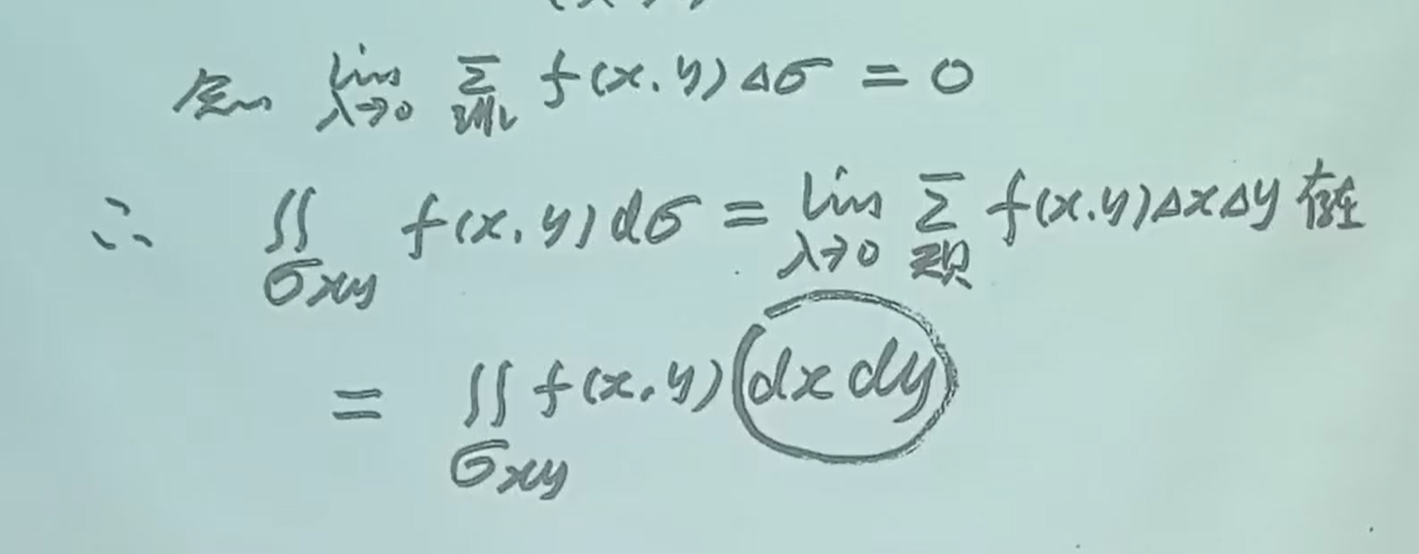 lim λ→0 Σ f(x,y)Δσ = 0
∴ ∬σxy f(x,y)dσ = lim λ→0 Σ f(x,y)ΔxΔy 存在
= ∬σxy f(x,y)dxdy